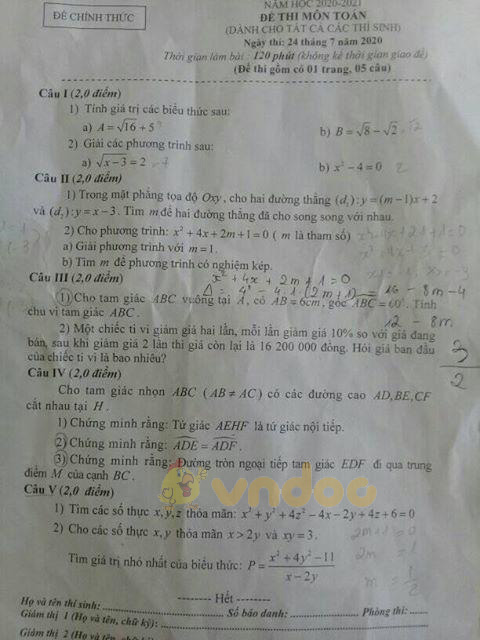 ĐỀ CHÍNH THỨC
NĂM HỌC 2020-2021
ĐỀ THI MÔN TOÁN
(DÀNH CHO TẤT CẢ CÁC THÍ SINH)
Ngày thi: 24 tháng 7 năm 2020
Thời gian làm bài : 120 phút (không kể thời gian giao đề)
(Đề thi gồm có 01 trang, 05 câu)
Câu I (2,0 điểm)
1) Tính giá trị các biểu thức sau:
a) A = √16 + 5 b) B = √8 − √2
2) Giải các phương trình sau:
a) √x−3 = 2 b) x² − 4 = 0
Câu II (2,0 điểm)
1) Trong mặt phẳng tọa độ Oxy, cho hai đường thẳng (d₁): y = (m−1)x + 2
và (d₂): y = x − 3. Tìm m để hai đường thẳng đã cho song song với nhau.
2) Cho phương trình: x² + 4x + 2m + 1 = 0 ( m là tham số)
a) Giải phương trình với m = 1.
b) Tìm m để phương trình có nghiệm kép.
x² + 4x + 2m + 1 = 0
Câu III (2,0 điểm) Δ = 4² − 4.1 (2m+1) = 16 − 8m − 4
1) Cho tam giác ABC vuông tại A, có AB = 6cm, góc ABC = 60°. Tính
chu vi tam giác ABC. 12 − 8m
2) Một chiếc ti vi giảm giá hai lần, mỗi lần giảm giá 10% so với giá đang
bán, sau khi giảm giá 2 lần thì giá còn lại là 16 200 000 đồng. Hỏi giá ban đầu
của chiếc ti vi là bao nhiêu? 3/2
Câu IV (2,0 điểm)
Cho tam giác nhọn ABC ( AB ≠ AC ) có các đường cao AD, BE, CF
cắt nhau tại H.
1) Chứng minh rằng: Tứ giác AEHF là tứ giác nội tiếp.
2) Chứng minh rằng: ADE = ADF.
3) Chứng minh rằng: Đường tròn ngoại tiếp tam giác EDF đi qua trung
điểm M của cạnh BC.
vndoc
Câu V (2,0 điểm)
1) Tìm các số thực x, y, z thỏa mãn: x² + y² + 4z² − 4x − 2y + 4z + 6 = 0
2) Cho các số thực x, y thỏa mãn x > 2y và xy = 3. 2m + 1 = 0
2m = 1
Tìm giá trị nhỏ nhất của biểu thức: P = (x² + 4y² − 11)/(x − 2y)
m = 1/2
-------- Hết --------
Họ và tên thí sinh: Số báo danh: Phòng thi:
Giám thị 1 (Họ và tên, chữ ký):
Giám thị 2 (Họ và tên, chữ ký)